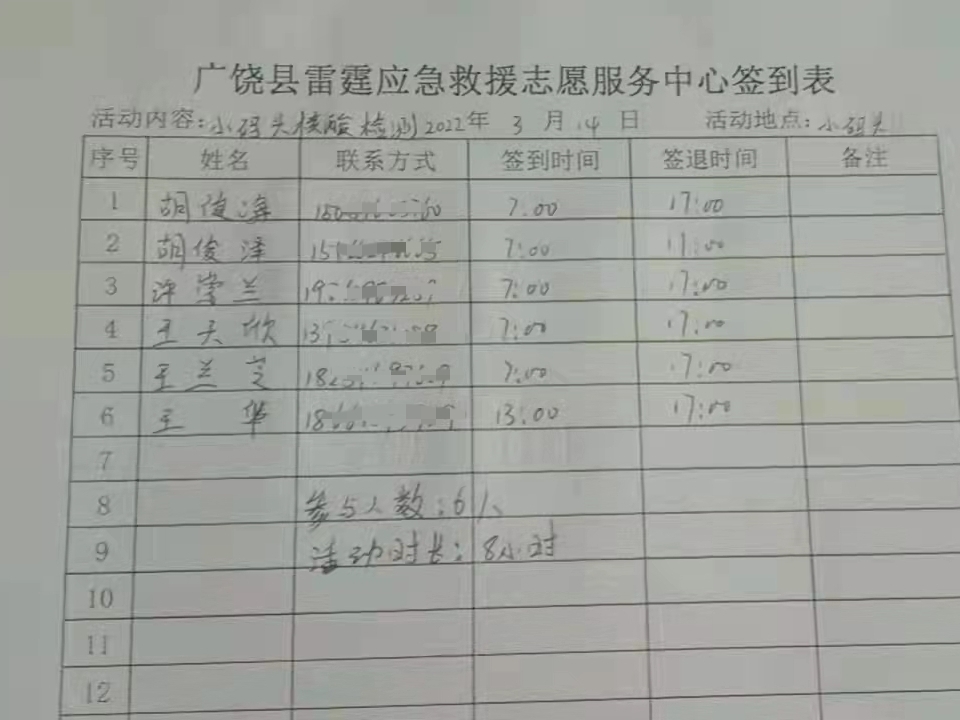 广饶县雷霆应急救援志愿服务中心签到表
活动内容:小码头核酸检测2022年 3 月 14 日 活动地点:小码头
序号 姓名 联系方式 签到时间 签退时间 备注
1 胡俊 7:00 17:00
2 胡俊泽 7:00 17:00
3 许 兰 7:00 17:00
4 王天欣 7:00 17:00
5 王兰芝 7:00 17:00
6 王 华 13:00 17:00
7
8 参与人数:6人
9 活动时长:8小时
10
11
12